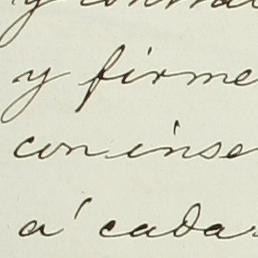 y contra
y firme
con inse
á cada